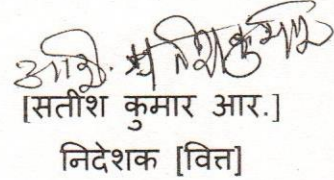 [सतीश कुमार आर.]
निदेशक [वित्त]